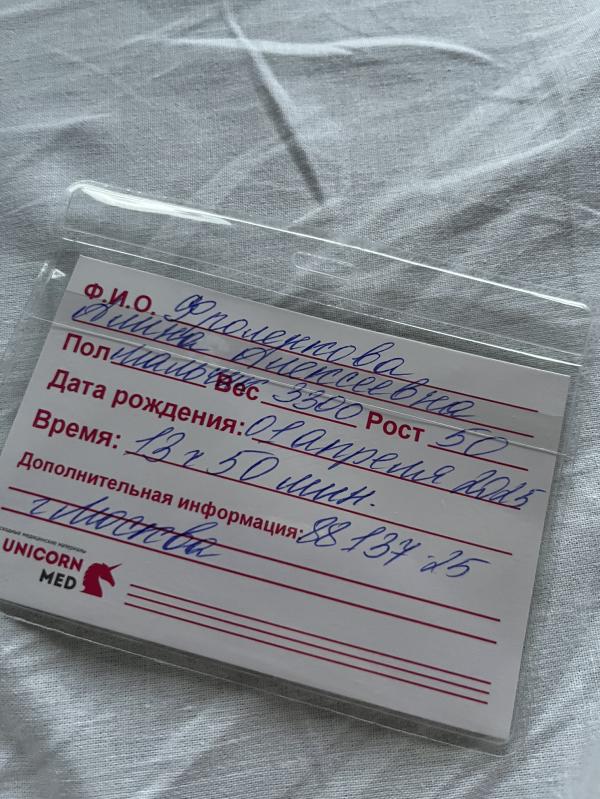 Ф.И.О. Фроленкова
Алина Алексеевна
Пол мальчик Вес 3300 Рост 50
Дата рождения: 01 апреля 2025
Время: 13 ч 50 мин.
Дополнительная информация: 88 137-25
г. Москва
медицинские материалы
UNICORN
MED